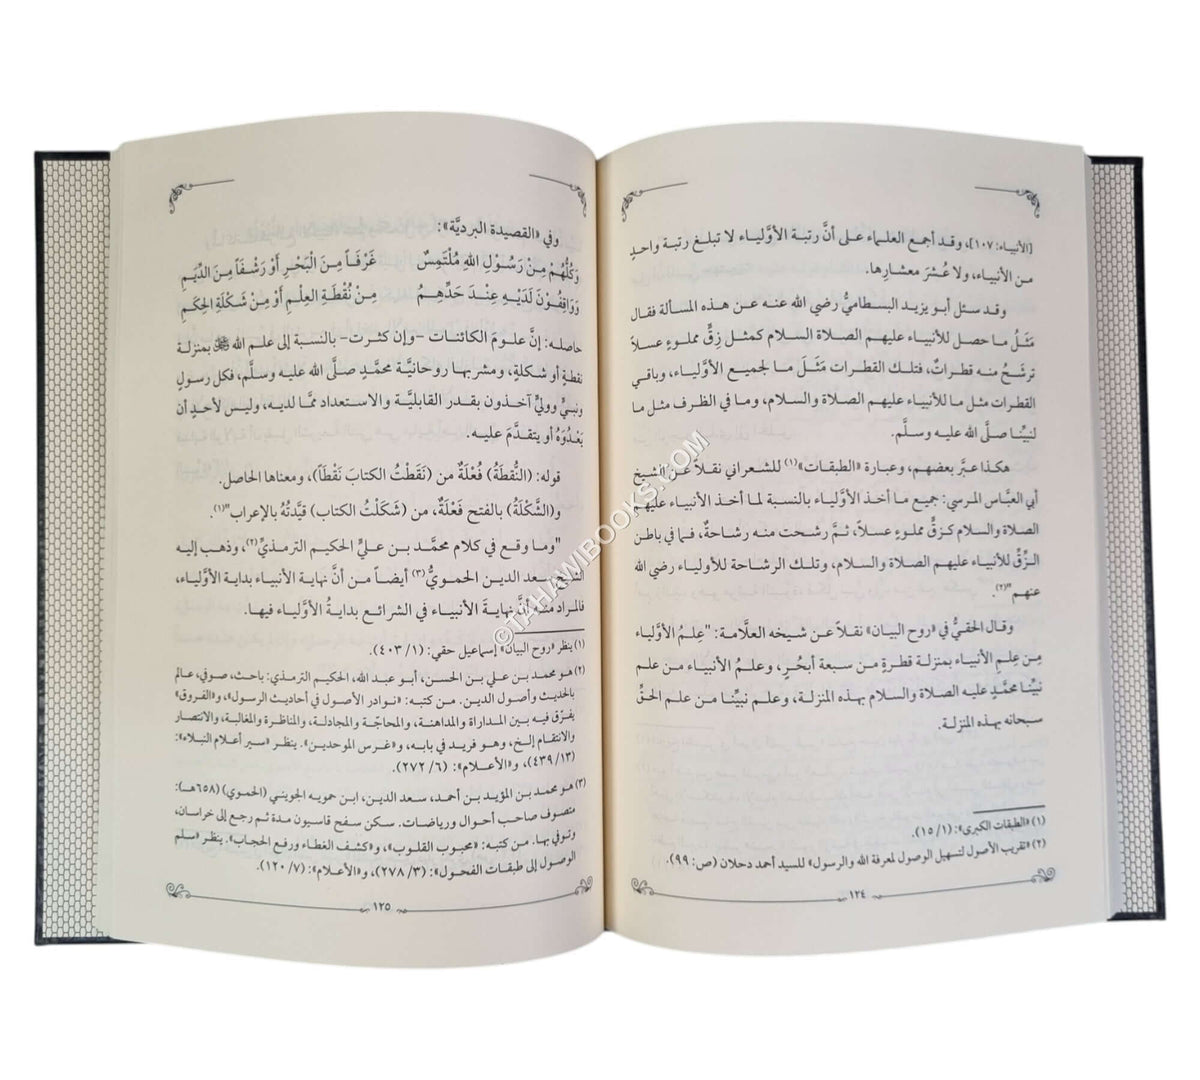 [الأنبياء: ١٠٧]، وقد أجمع العلماء على أنَّ رتبة الأوَّلياء لا تبلغ رتبة واحدٍ
من الأنبياء، ولا عُشرَ معشارِها.
وقد سئل أبو يزيد البسطاميُّ رضي الله عنه عن هذه المسألة فقال
مَثَلُ ما حصل للأنبياء عليهم الصلاة السلام كمثل زِقٍّ مملوءٍ عسلاً
ترشَحُ منه قطراتٌ، فتلك القطرات مَثَلَ ما لجميع الأوَّلياء، وباقي
القطرات مثل ما للأنبياء عليهم الصلاة والسلام، وما في الظرف مثل ما
لنبيِّنا صلَّى الله عليه وسلَّم.
هكذا عبَّر بعضهم، وعبارة «الطبقات»(١) للشعراني نقلاً عن الشيخ
أبي العبَّاس المرسي: جميع ما أخذ الأوَّلياء بالنسبة لما أخذ الأنبياء عليهم
الصلاة والسلام كزقٍّ مملوءٍ عسلاً، ثمَّ رشحت منه رشاحةٌ، فما في باطن
الزِّقِّ للأنبياء عليهم الصلاة والسلام، وتلك الرشاحة للأولياء رضي الله
عنهم"(٢).
وقال الحقيُّ في «روح البيان» نقلاً عن شيخه العلَّامة: "عِلمُ الأوَّلياء
مِن عِلمِ الأنبياء بمنزلة قطرةٍ من سبعة أبحُرٍ، وعلمُ الأنبياء من علم
نبيِّنا محمَّدٍ عليه الصلاة والسلام بهذه المنزلة، وعلم نبيِّنا من علم الحقِّ
سبحانه بهذه المنزلة.
(١) «الطبقات الكبرى»: (١/ ١٥).
(٢) «تقريب الأصول لتسهيل الوصول لمعرفة الله والرسول» للسيد أحمد دحلان (ص: ٩٩).
١٢٤
وفي «القصيدة البرديَّة»:
وَكُلُّهُمْ مِنْ رَسُوْلِ اللهِ مُلْتَمِسٌ غَرْفَاً مِنَ الْبَحْرِ أَوْ رَشْفَاً مِنَ الدِّيَمِ
وَوَاقِفُوْنَ لَدَيْهِ عِنْدَ حَدِّهِمُ مِنْ نُقْطَةِ العِلْمِ أَوْ مِنْ شَكْلَةِ الحِكَمِ
حاصله: إنَّ علومَ الكائنات -وإن كثرت- بالنسبة إلى علم الله ﷻ بمنزلة
نقطةٍ أو شكلةٍ، ومشربها روحانيَّة محمَّدٍ صلَّى الله عليه وسلَّم، فكل رسولٍ
ونبيٍّ ووليٍّ آخذون بقدر القابليَّة والاستعداد ممَّا لديه، وليس لأحدٍ أن
يَعْدُوَهُ أو يتقدَّمَ عليه.
قوله: (النُّقطَةُ) فُعْلَةٌ من (نَقَطْتُ الكتابَ نَقْطَاً)، ومعناها الحاصل.
و(الشَّكْلَةُ) بالفتح فَعْلَةٌ، من (شَكَلْتُ الكتاب) قيَّدتُهُ بالإعراب"(١).
"وما وقع في كلام محمَّد بن عليٍّ الحكيم الترمذيِّ(٢)، وذهب إليه
الشيخ سعد الدين الحمويُّ(٣) أيضاً من أنَّ نهاية الأنبياء بداية الأوَّلياء،
فالمراد منه أنَّ نهايةَ الأنبياء في الشرائع بدايةُ الأوَّلياء فيها.
(١) ينظر «روح البيان» إسماعيل حقي: (١/ ٤٠٣).
(٢) هو محمد بن علي بن الحسن، أبو عبد الله، الحكيم الترمذي: باحث، صوفي، عالم
بالحديث وأصول الدين. من كتبه: «نوادر الأصول في أحاديث الرسول»، و«الفروق»
يفرّق فيه بين المداراة والمداهنة، والمحاجّة والمجادلة، والمناظرة والمغالبة، والانتصار
والانتقام إلخ، وهو فريد في بابه، و«غرس الموحدين». ينظر «سير أعلام النبلاء»:
(١٣/ ٤٣٩)، و«الأعلام»: (٦/ ٢٧٢).
(٣) هو محمد بن المؤيد بن أحمد، سعد الدين، ابن حمويه الجويني (الحموي) (٦٥٨هـ):
متصوف صاحب أحوال ورياضات. سكن سفح قاسيون مدة ثم رجع إلى خراسان،
وتوفي بها. من كتبه: «محبوب القلوب»، و«كشف الغطاء ورفع الحجاب». ينظر «سلم
الوصول إلى طبقات الفحول»: (٣/ ٢٧٨)، و«الأعلام»: (٧/ ١٢٠).
١٢٥
©TAHAWIBOOKST.COM